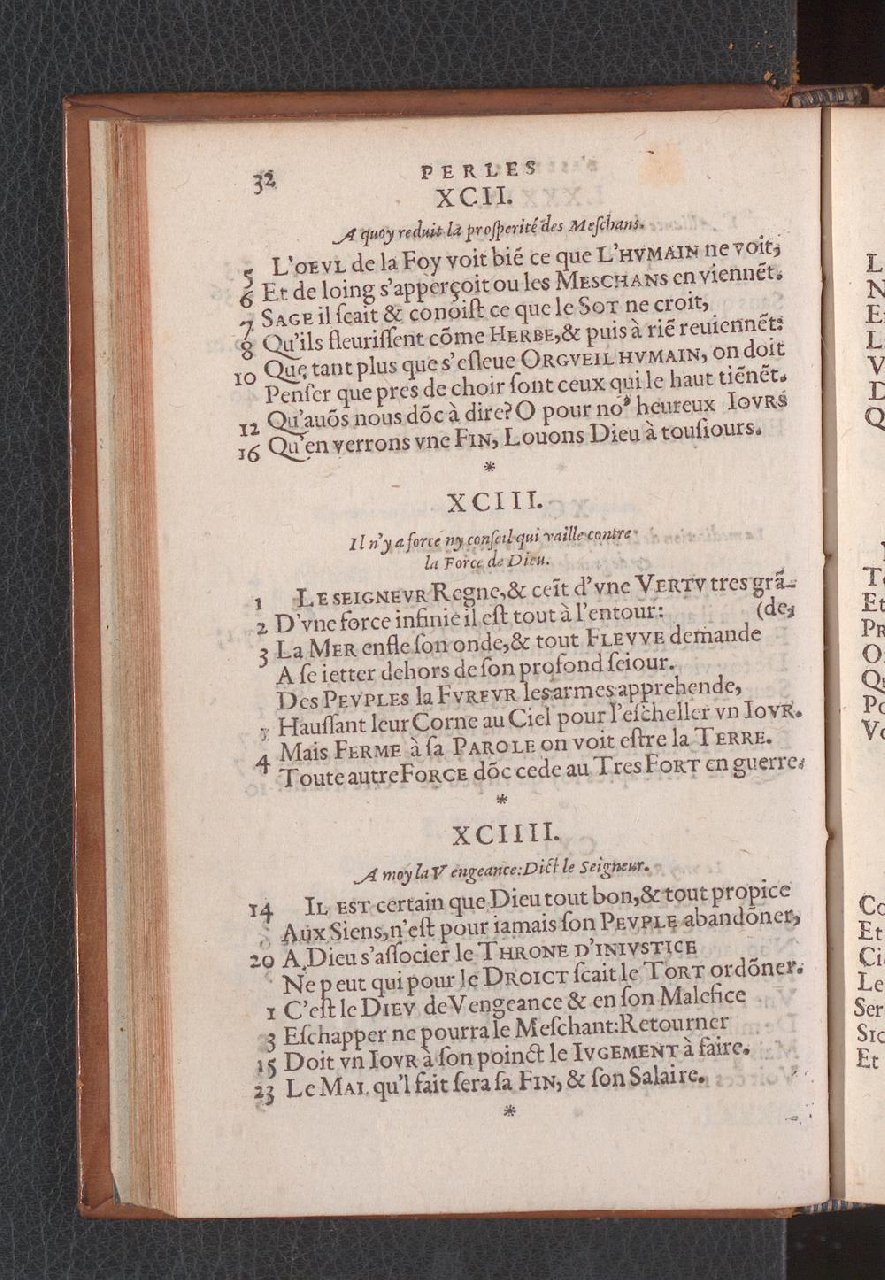 32
PERLES
XCII.
A quoy reduit la prosperité des Meſchans.
5 L'OEVL de la Foy voit biē ce que L'HVMAIN ne voit,
6 Et de loing s'apperçoit ou les MESCHANS en viennēt.
7 SAGE il ſcait & conoiſt ce que le SOT ne croit,
8 Qu'ils fleuriſſent cōme HERBE, & puis à riē reuiennēt:
Que tant plus que s'eſleue ORGVEIL HVMAIN, on doit
10 Penſer que pres de choir ſont ceux qui le haut tiēnēt.
12 Qu'auōs nous dōc à dire? O pour noꝰ heureux IOVRS
16 Qu'en verrons vne FIN, Louons Dieu à touſiours.
*
XCIII.
Il n'y a force ny conſeil qui vaille contre
la Force de Dieu.
1 LE SEIGNEVR Regne, & ceīt d'vne VERTV tres grā-
2 D'vne force infinie il eſt tout à l'entour: (de,
3 La MER enfle ſon onde, & tout FLEVVE demande
A ſe ietter dehors de ſon profond ſeiour.
Des PEVPLES la FVREVR les armes apprehende,
5 Hauſſant leur Corne au Ciel pour l'eſcheller vn IOVR.
4 Mais FERME à ſa PAROLE on voit eſtre la TERRE.
Toute autre FORCE dōc cede au Tres FORT en guerre.
*
XCIIII.
A moy la Vengeance: Dict le Seigneur.
14 IL EST certain que Dieu tout bon, & tout propice
Aux Siens, n'eſt pour iamais ſon PEVPLE abandōner,
20 A Dieu s'aſſocier le THRONE D'INIVSTICE
Ne peut qui pour le DROICT ſcait le TORT ordōner.
1 C'eſt le DIEV de Vengeance & en ſon Malefice
3 Eſchapper ne pourra le Meſchant: Retourner
15 Doit vn IOVR à ſon poinct le IVGEMENT à faire.
23 Le MAL qu'l fait ſera ſa FIN, & ſon Salaire.
*